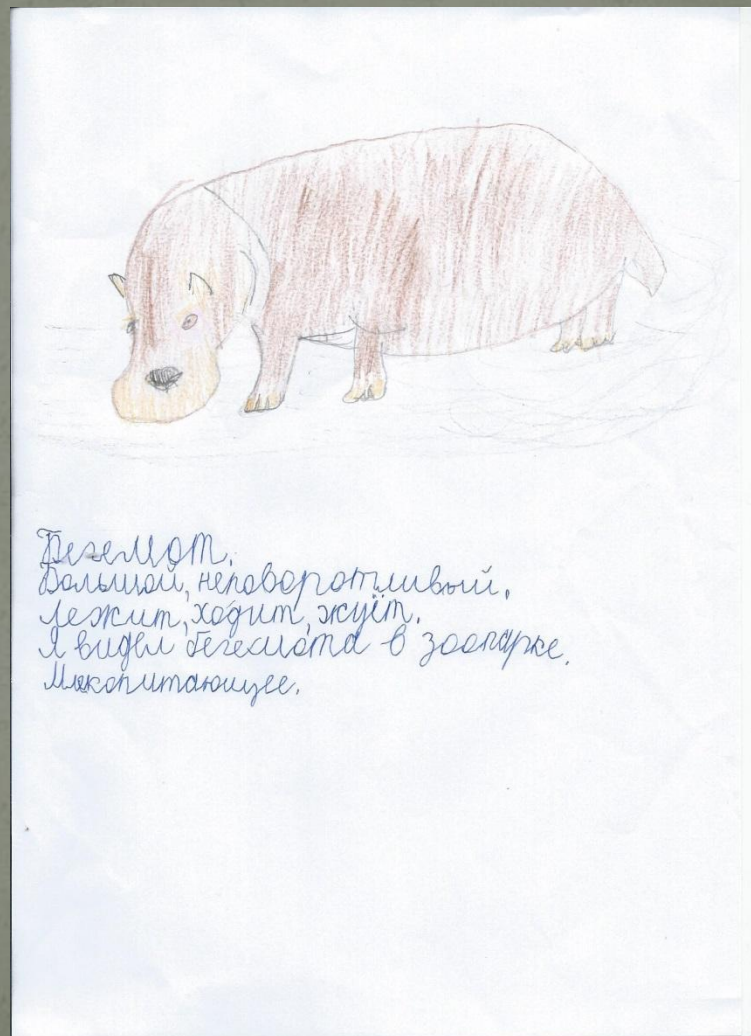 Бегемот.
Большой, неповоротливый.
Лежит, ходит, жуёт.
Я видел бегемота в зоопарке.
Млекопитающее.